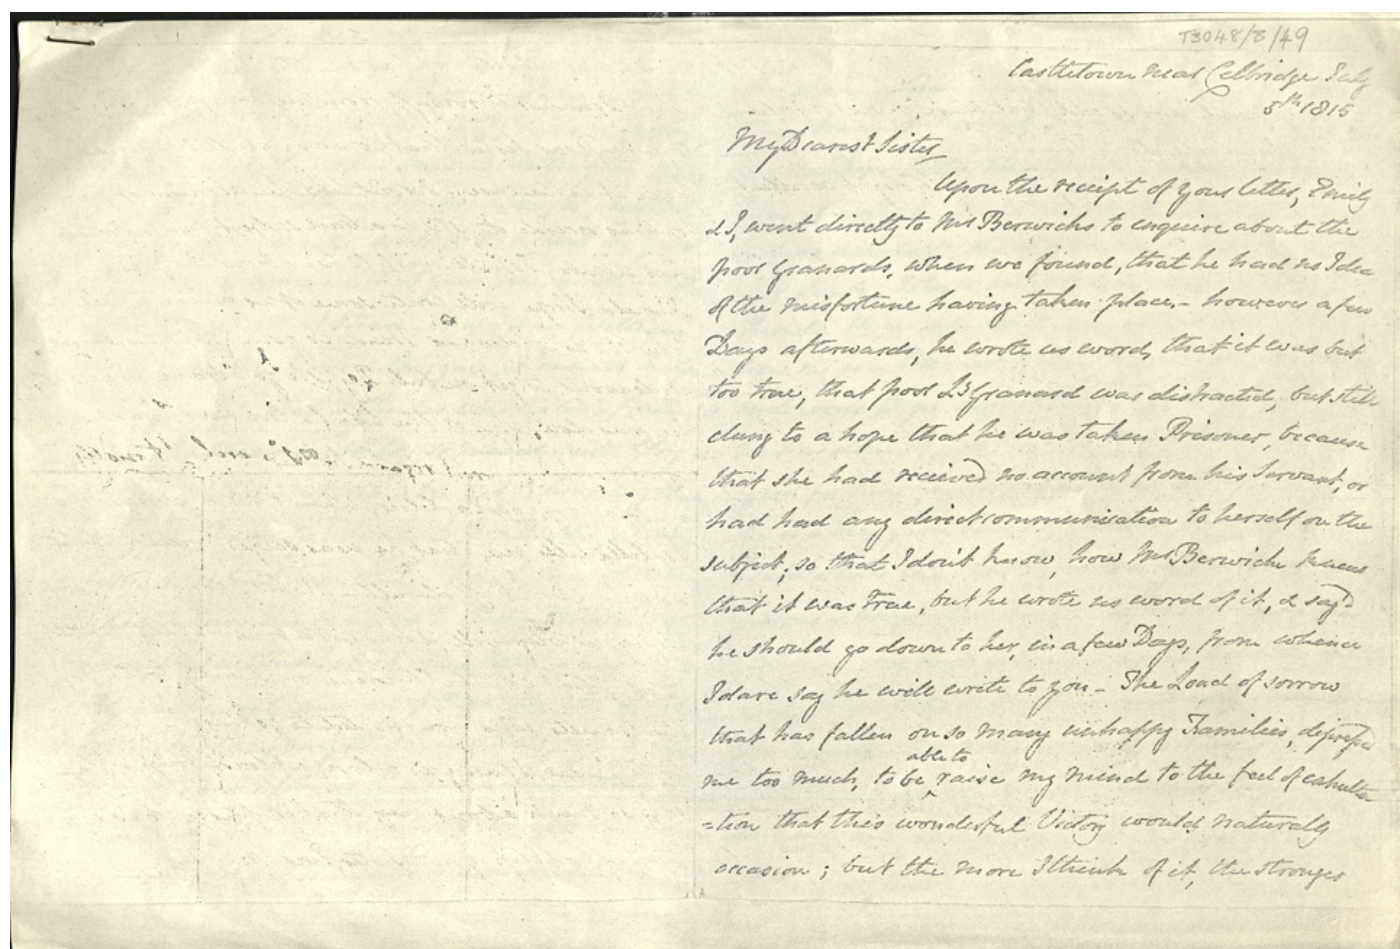 T3048/B/49
Castletown near Celbridge July
5th 1815
My Dearest Sister
Upon the receipt of your letter, Emily
& I, went directly to Mr Berwicks to enquire about the
poor Granards, when we found, that he had no Idea
of the misfortune having taken place. - however a few
Days afterwards, he wrote us word, that it was but
too true, that poor Ly Granard was distracted, but still
clung to a hope that he was taken Prisoner, because
that she had recieved no account from his Servant, or
had had any direct communication to herself on the
subject; so that I don't know, how Mr Berwick knew
that it was true, but he wrote us word of it, & say'd
he should go down to her, in a few Days, from whence
I dare say he will write to you - The Load of sorrow
that has fallen on so many unhappy Families, depress'd
me too much, to be able to raise my mind to the feel of exulta
=tion that this wonderful Victory would naturally
occasion; but the more I think of it, the stronger